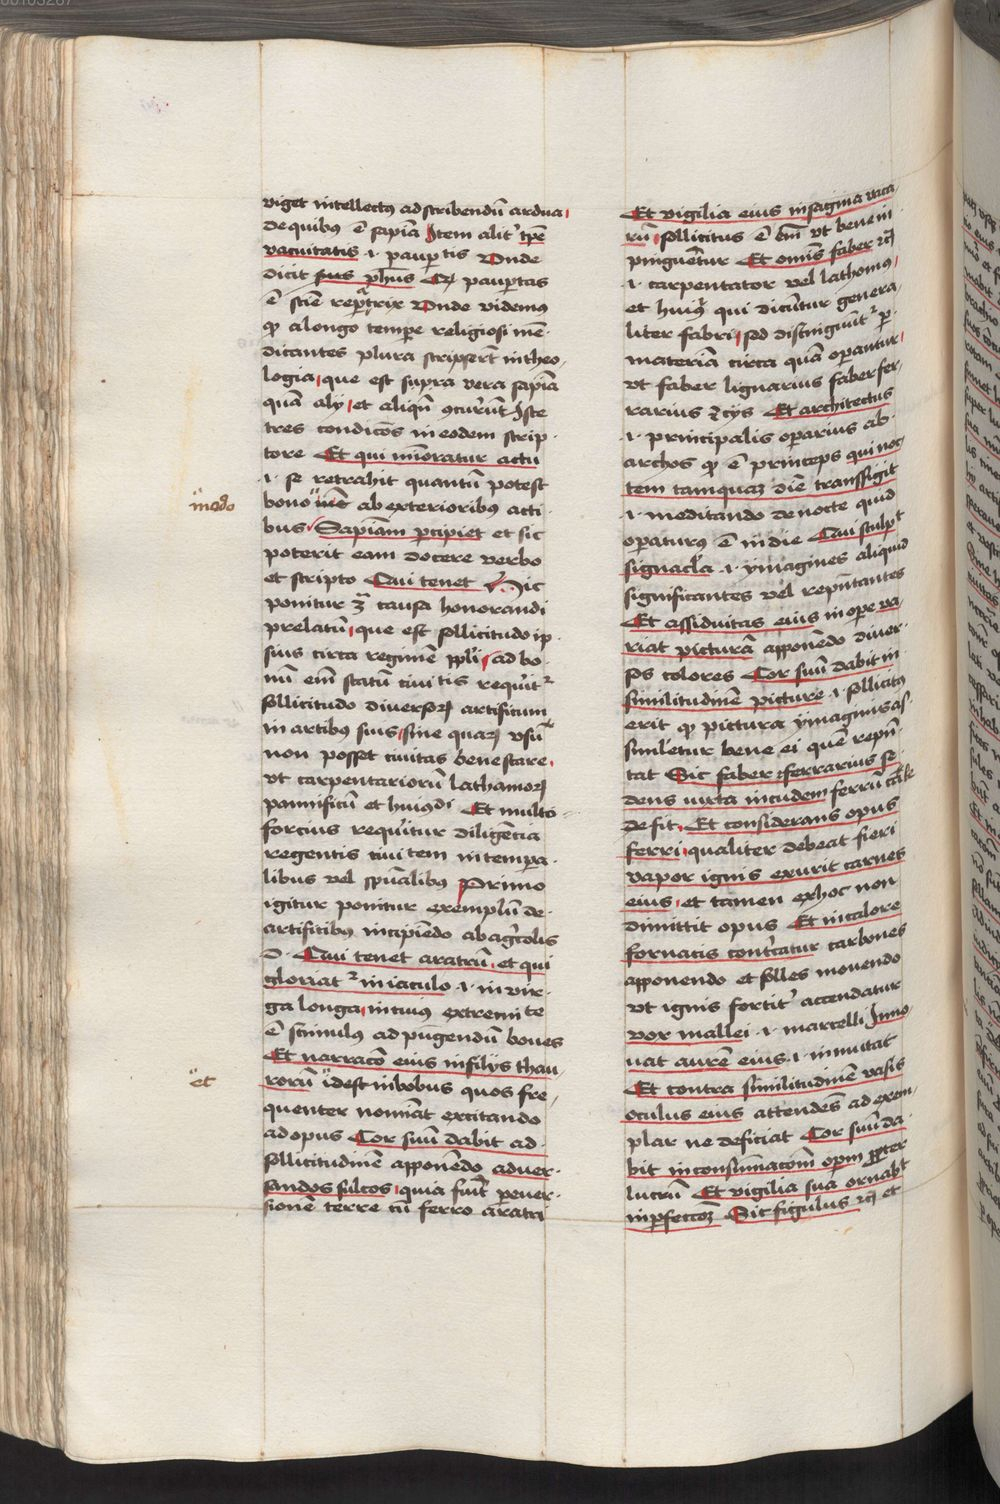 viget intellectus ad scribendū ardua
de quibus ē sapīa Item alit' tp̄e
vacuitatis .i. paup̄tis Unde
dicit suus ph̄us Qꝫ paup̄tas
ē scīe rep̄trix Unde videmus
qꝫ a longo tempe religiosi mē-
dicantes plura scripser̄t in theo-
logia que est supra vera sapīa
quā alij et aliqn̄ ꝯcur̄ūt Iste
tres condicōs in eodem scrip-
tore Et qui mīoratur actu
.i. se retrahit quantū potest
bono ab exterioribus acti
bus Sapiām p̄cipiet et sic
poterit eam docere verbo
et scripto Qui tenet Hic
ponitur 3ᵃ causa honorandi
prelatū que est sollicitudo ip-
sius circa regimē ppli ad bo-
nū em̄ statū ciuitis requ'it'
sollicitudo diuersoꝝ artificum
in artibus suis sine quaꝝ vsu
non posset ciuitas bene stare
vt carpentarioꝛū lathamoꝝ
pannificū et huiusdi Et multo
forcius requ'itur diligēcia
regentis ciuitem in tempa-
libus vel sp̄ualibus Primo
igitur ponitur exemplū de
artificibus incipiēdo ab ag'colis
d. Qui tenet aratrū et qui
gloriat' in iaculo .i. in vir-
ga longa in cuius extremite
ē stimulus ad pūgendū boues
Et narracō eius in filijs thau-
rorū idest in bobus quos fre-
quenter nomīat excitando
ad opus Cor suū dabit ad
sollicitudinē apponēdo ad ver-
sandos sulcos quia fiūt p̄ ver-
sionē terre cū ferro aratri
modo
et
Et vigilia eius in sagina vaca-
rū sollicitus ē em̄ vt bene in
pinguētur Et omīs faber ⁊cꝫ
.i. carpentator vel lathomus
et huiusꝫ qui dicūtur genera-
liter fabri sed distinguūt' p̄
materiā circa quā operantur
vt faber lignarius faber fer-
rarius ⁊ cijs Et architectus
.i. principalis operarius ab
archos qꝫ ē princeps qui noc-
tem tamquaꝫ diē transfigit
.i. meditando de nocte quid
operaturus ē in die Qui sculpt
signacl'a .i. ymagines aliquid
significantes vel rep̄ntantes
Et assiduitas eius in ope va
riat picturā apponēdo diuer-
sos colores Cor suū dabit in
similitudinē picture .i. sollicitus
erit qꝫ pictura ymaginis as-
similetur bene ei quē rep̄n-
tat Sic faber ferrarius se-
dens iuxta incudem ferrū
de fit Et considerans opus
ferri qualiter debeat fieri
vapor ignis exurit carnes
eius et tamen ex hoc non
dimittit opus Et in calore
fornacis cont'catur carbones
apponendo et folles mouendo
vt ignis fortit' accendatur
vox mallei .i. martelli Inno-
uat aurē eius .i. inmutat
Et contra similitudinē vasis
oculus eius attendēs ad exem-
plar ne deficiat Cor suū da
bit in consūmacom̄ op̄m p̄pter
lucrū Et vigilia sua ornab't
inp̄fectōꝫ Sic figulus ⁊cꝫ et